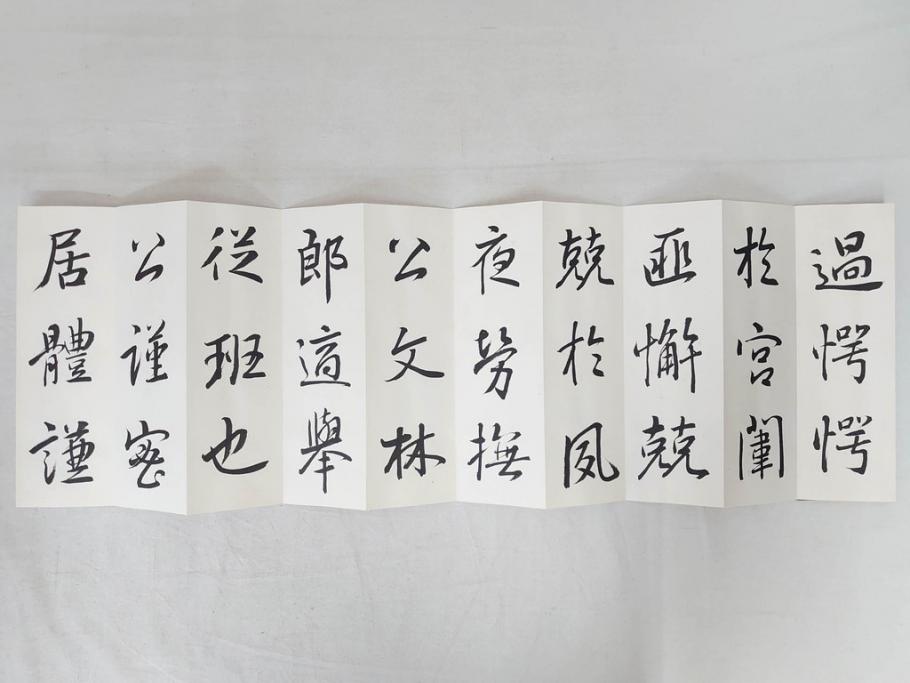 過愕愕
於宮闈
匪懈兢
兢於夙
夜勞撫
公文林
郎適舉
從班也
公謹密
居體謙